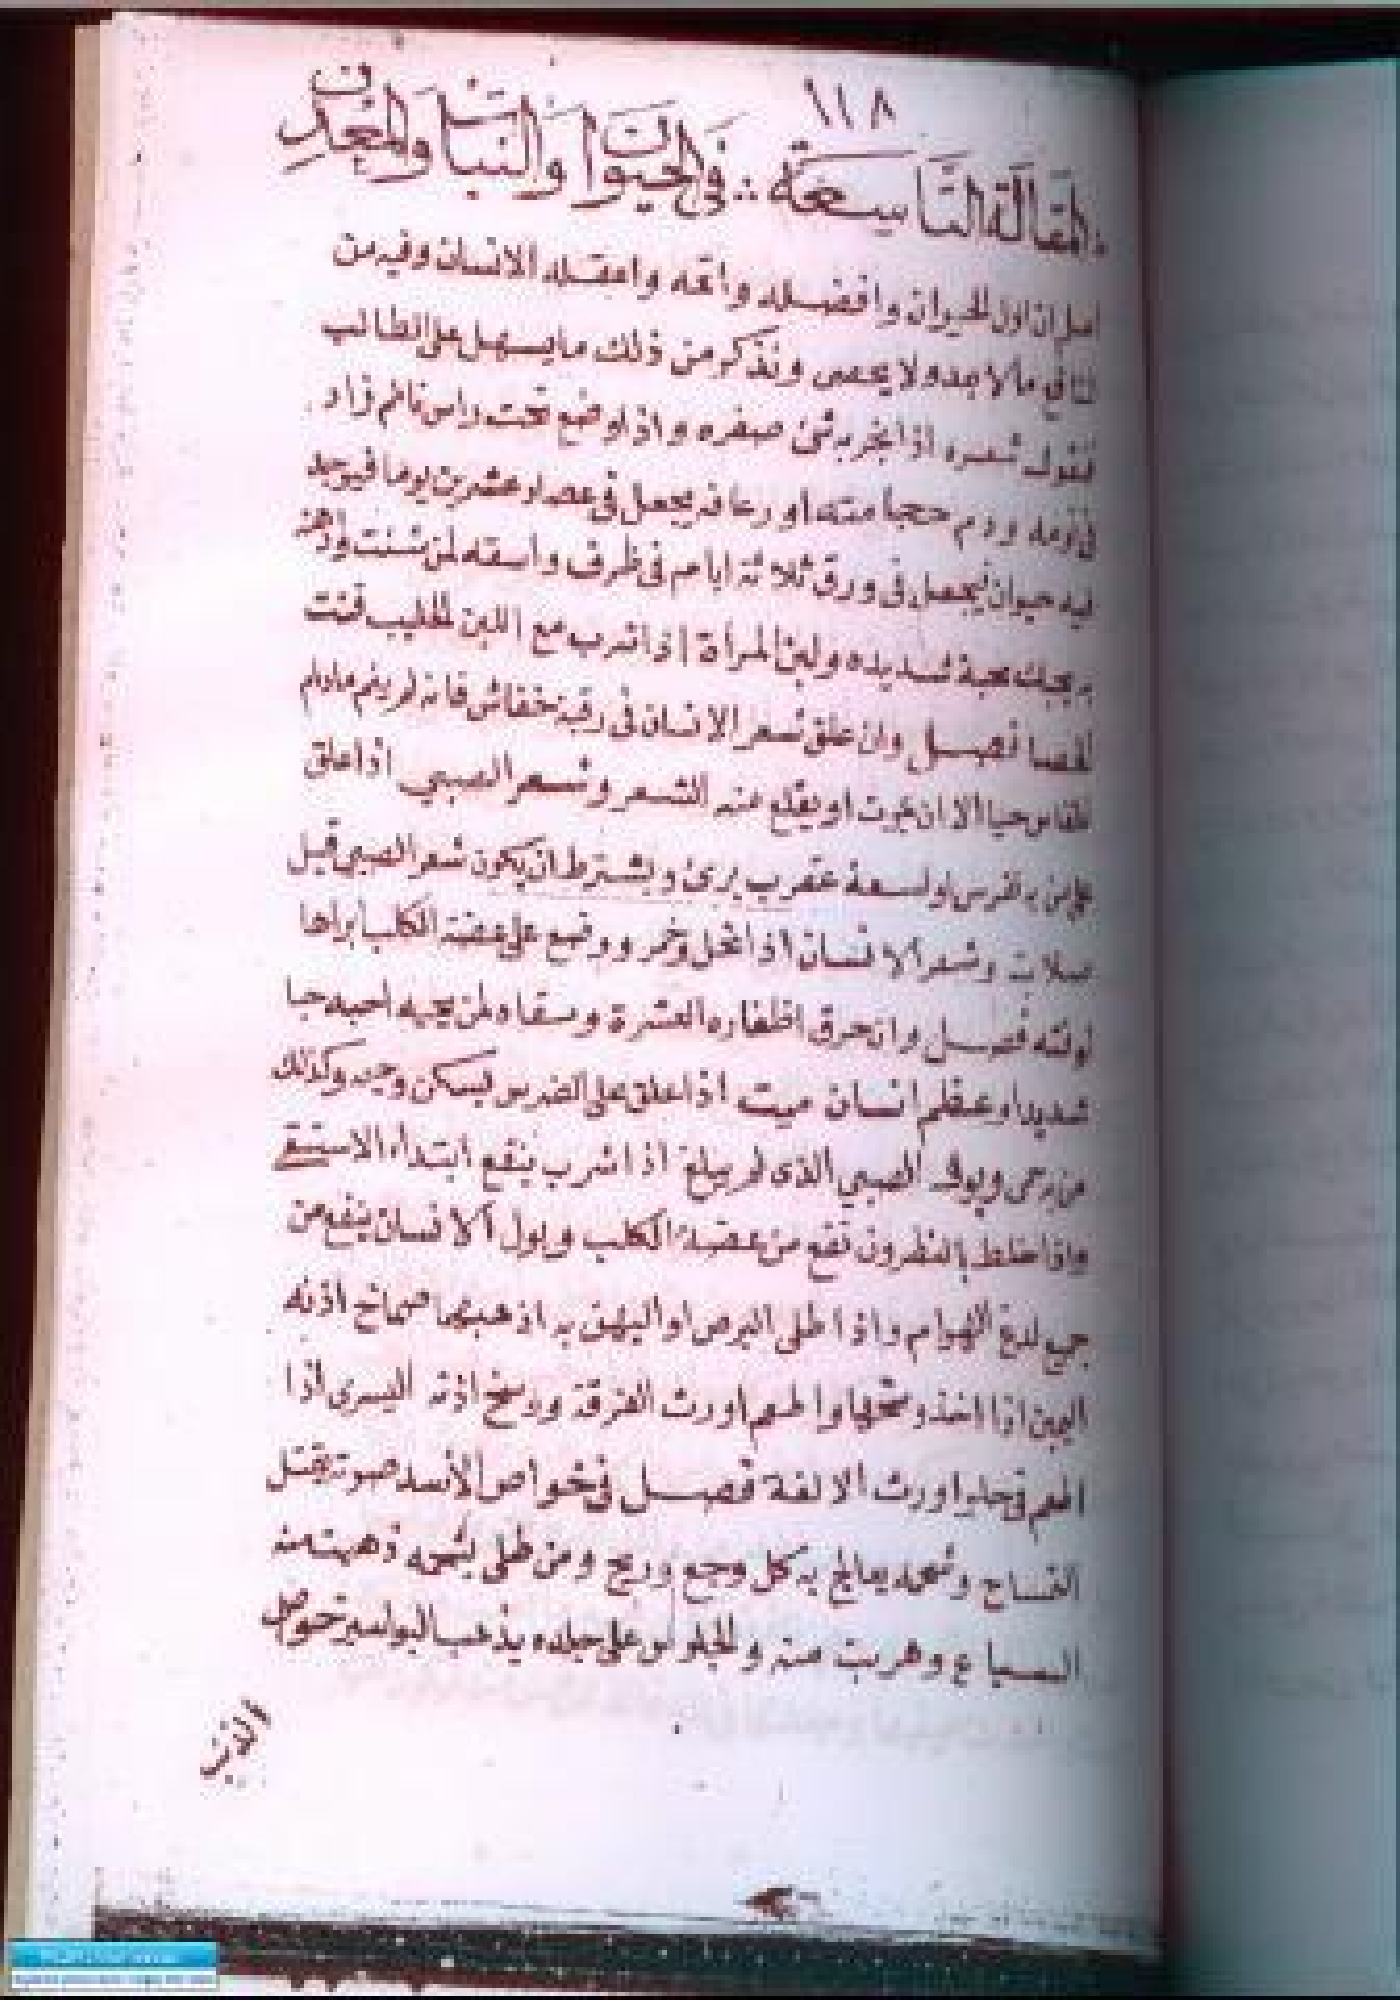 ١١٨
المقالة التاسعة ∴ في الحيوان والنبات والمعدن
اعلم ان اول الحيوان وافضله واتمه واعقله الانسان وفيه من
ما لا يعد ولا يحصى ونذكر من ذلك ما يسهل على الطالب
فنقول شعره اذا بخر به شئ صفره واذا وضع تحت راس نائم زاد
في نومه ودم حجامته او رعافه يجعل في عشرين يوما فيوجد
فيه حيوان فيجعل في ورق ثلاثة ايام في ظرف واسقه لمن شئت
يحبك محبة شديده ولبن المراة اذا شرب مع اللبن الحليب فتت
الحصا فصل وان علق شعر الانسان في رقبة خفاش فانه لم ينم مادام
حيا الا ان يموت او يقلع عنه الشعر وشعر الصبي اذا علق
على من به نقرس او لسعة عقرب برئ ويشترط ان يكون شعر الصبي قبل
وشعر الانسان اذا وخمر ووضع على عضة الكلب ابراها
لوقته فصل وان حرق اظفاره العشرة وسقاه لمن يحبه احبه حبا
شديدا وعظم انسان ميت اذا علق على الضرس فيسكن وجعه وكذلك
من به حمى وبول الصبي الذى لم يبلغ اذا شرب ينفع ابتداء
واذا خلط بالنطرون نفع من عضة الكلب وبول الانسان ينفع من
جميع لدغ الهوام واذا طلى البرص او البهق به اذهبهما صماخ اذنه
اليمين اذا اخذ اورث الفرقة ووسخ اذنه اليسرى اذا
اطعم في حلوا اورث الالفة فصل في خواص الأسد صوته يقتل
التمساح وشحمه يعالج به كل وجع وريح ومن طلى بشحمه ذهبت منه
السباع وهربت منه والجلوس على جلده يذهب البواسير خواص
الذئب